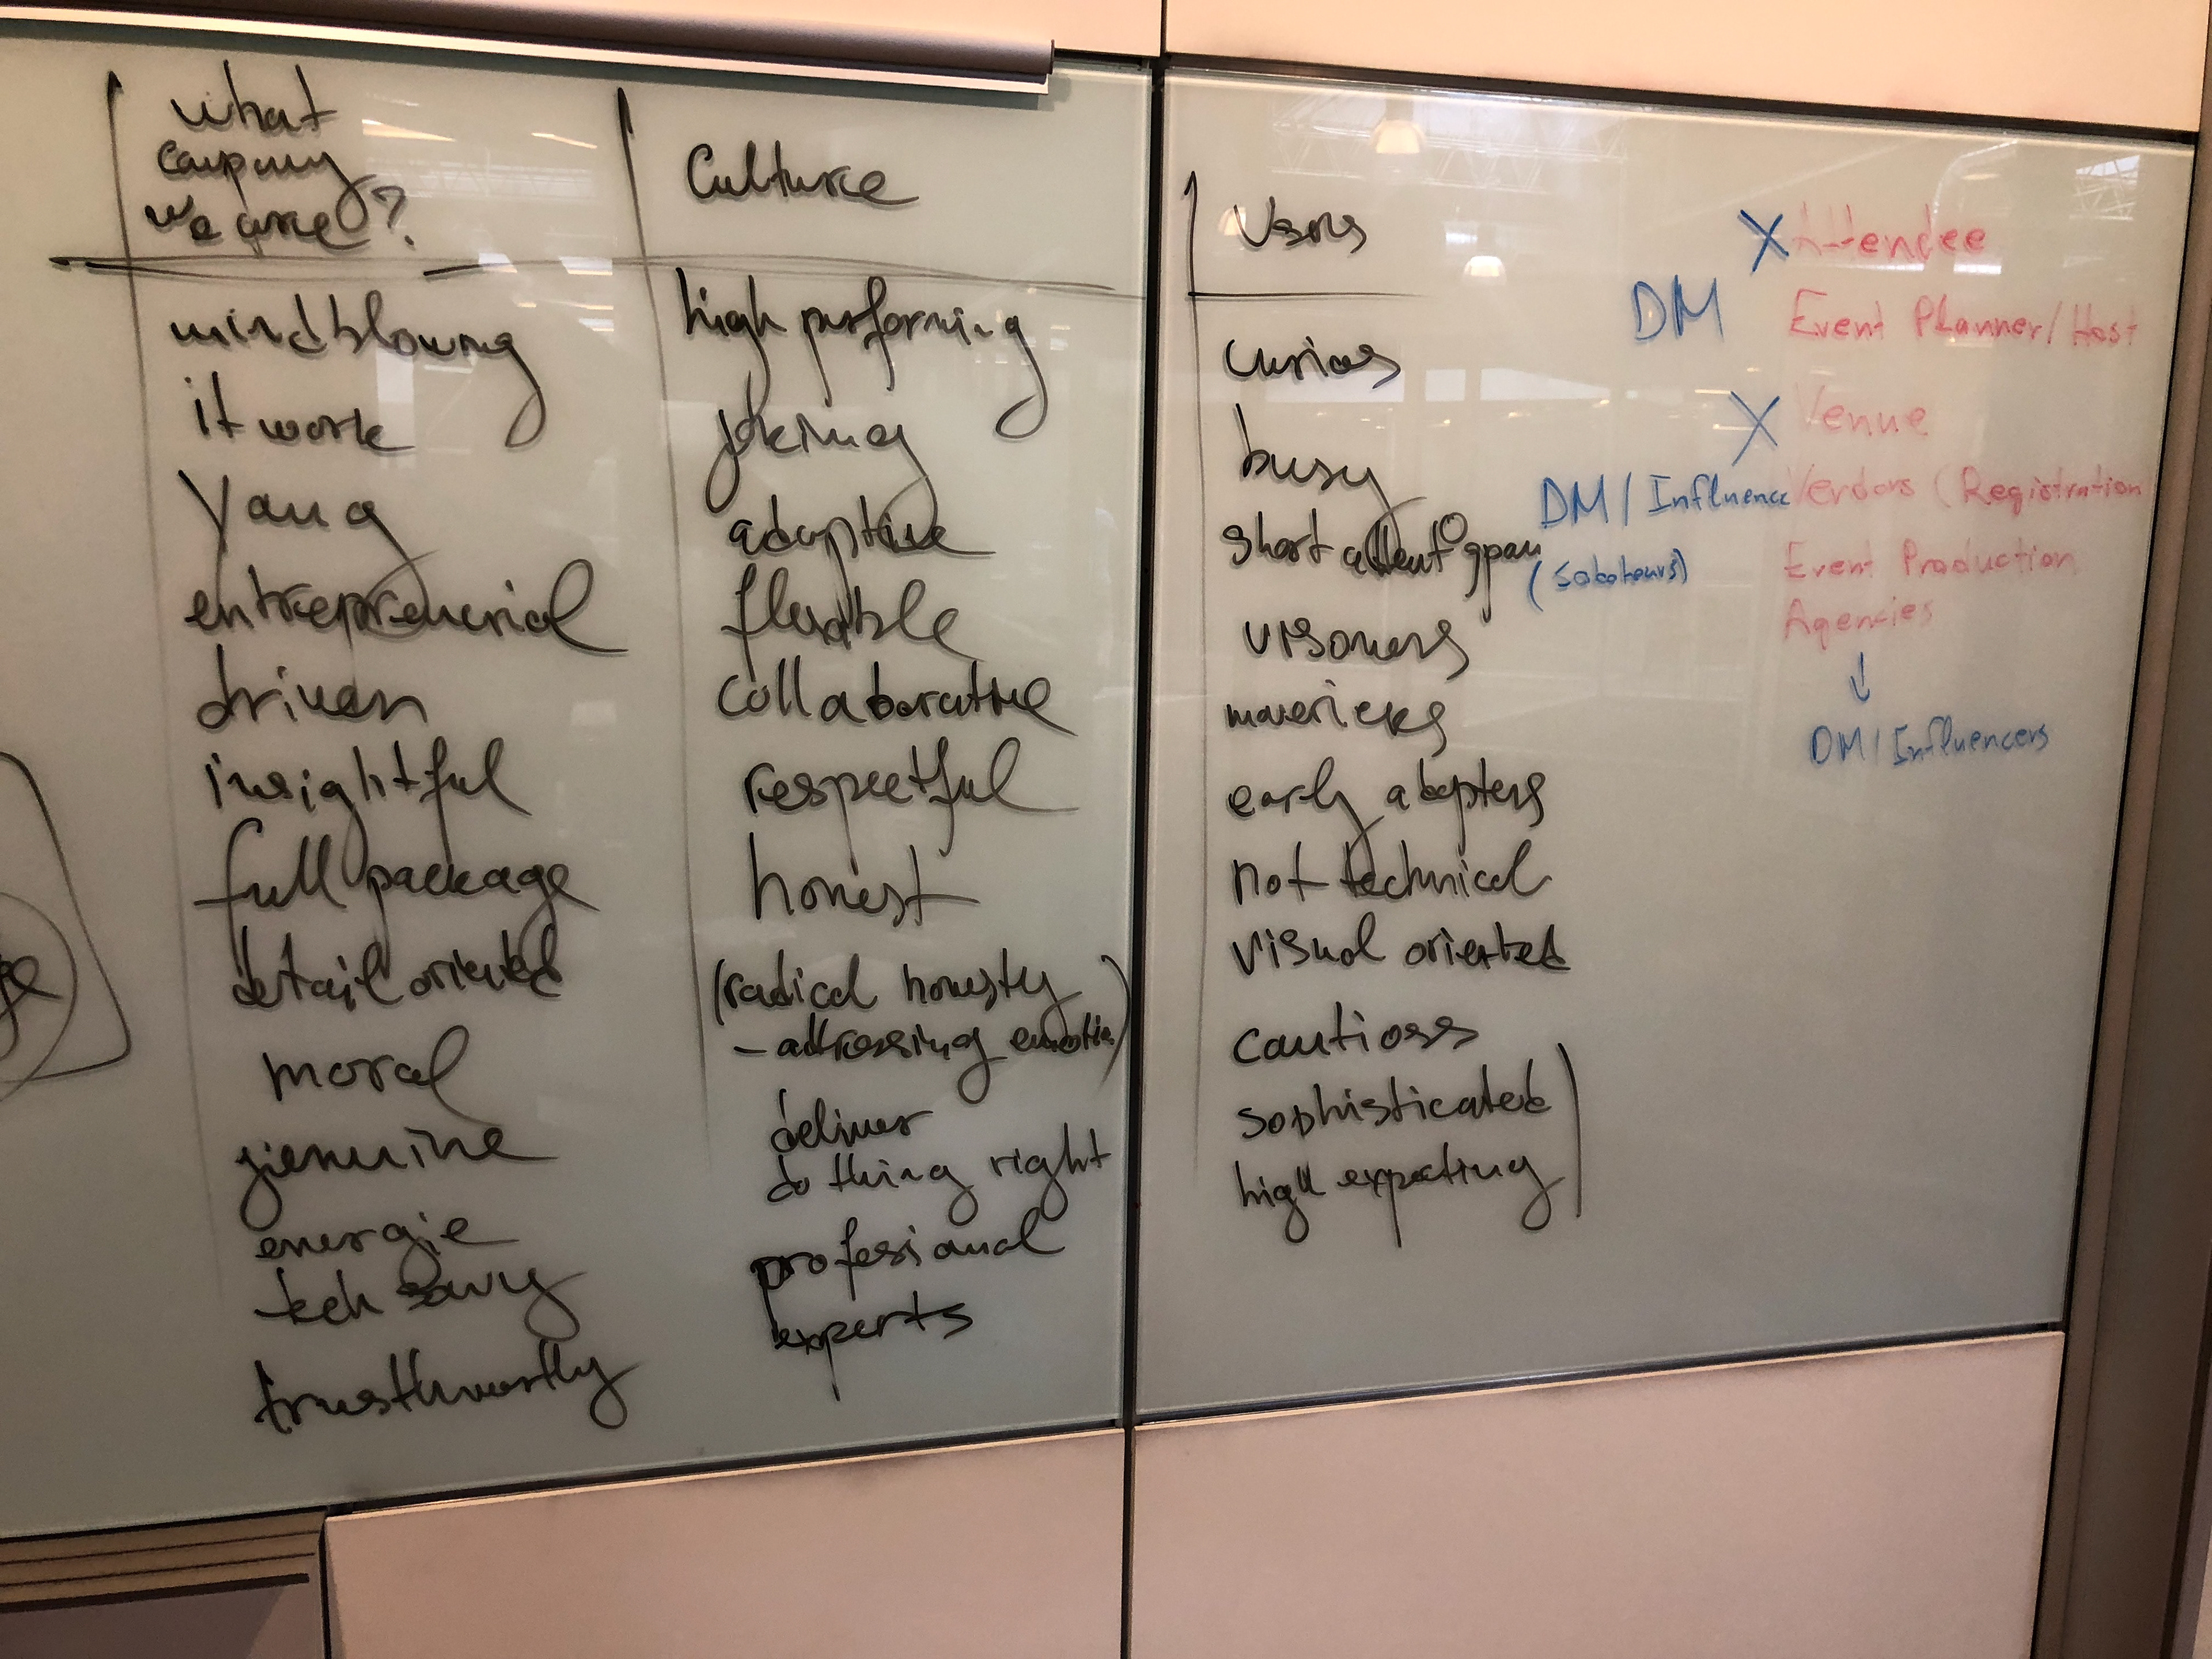 what
company
we are?
mindblowing
it work
Yang
entreprenerial
driven
insightful
full package
detail oriented
moral
gienuine
energie
tech savvy
trusthwortly
Culture
high performing
joking
adaptive
flexible
collaborative
respectful
honest
(radical honesty
- adressing emotio)
deliver
do thing right
profesional
experts
Users
curios
busy
short attent° span
visoners
mavericks
early adopters
not technical
visual oriented
cautioss
sophisticated
high expecting
X Attendee
DM Event Planner/Host
X Venue
DM/Influence Vendors (Registration
(Saboteurs)
Event Production
Agencies
↓
DM/Influencers